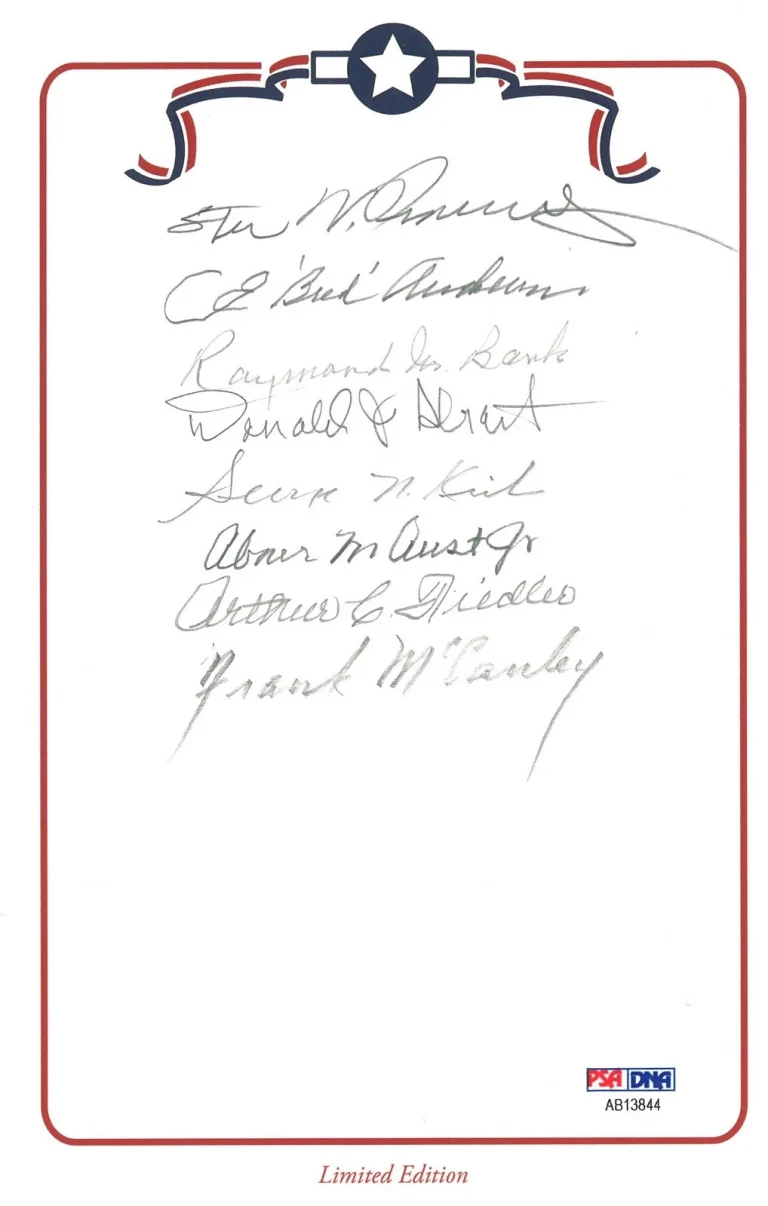 Sten W.
C E 'Bud' Anderson
Raymond M. Bank
Donald J Strait
George N. Kirk
Abner M Aust Jr
Arthur C. Fiedler
Frank McCauley
PSA DNA
AB13844
Limited Edition